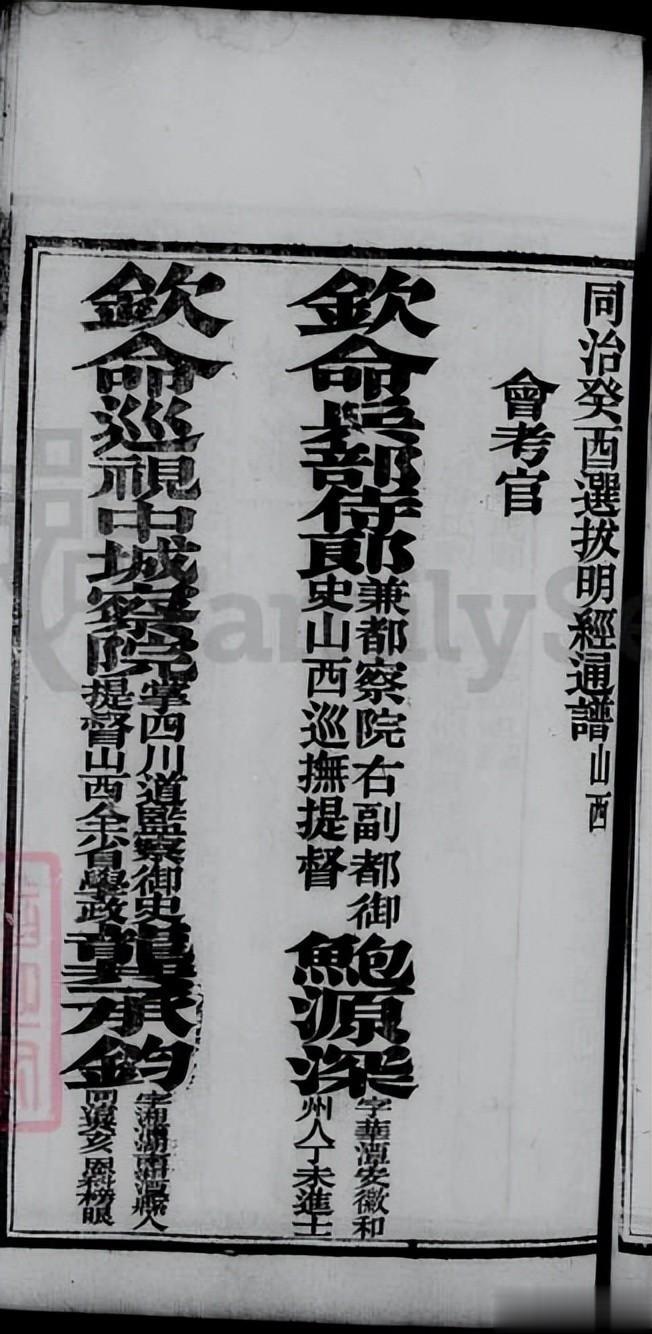 同治癸酉選拔明經通譜山西
會考官
欽命兵部侍郎兼都察院右副都御
史山西巡撫提督鮑源深字華潭安徽和
州人丁未進士
欽命巡視中城察院掌四川道監察御史
提督山西全省學政龔承鈞字湘浦湖南湘潭縣人
同治癸亥恩科榜眼
FamilySe